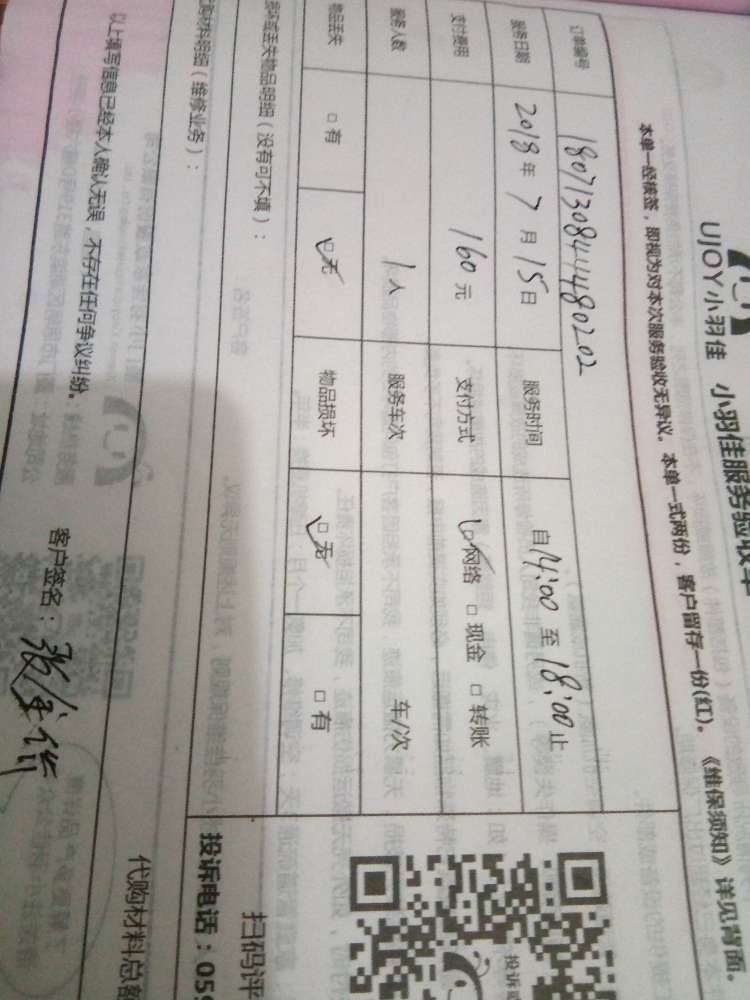 UJOY小羽佳 小羽佳服务验收单
本单一经核签，即视为对本次服务验收无异议。本单一式两份，客户留存一份(红)。《维保须知》详见背面。
订单编号 1807130844480202
服务日期 2018年7月15日 服务时间 自14:00至18:00止
支付费用 160元 支付方式 ☑网络 □现金 □转账
服务人数 1人 服务车次 车/次
物品丢失 □有 ☑无 物品损坏 ☑无 □有
损坏或丢失物品明细（没有可不填）：
材料明细（维修业务）：
投诉电话：059
扫码评
投诉
代购材料总额
以上填写信息已经本人确认无误，不存在任何争议纠纷。
客户签名：